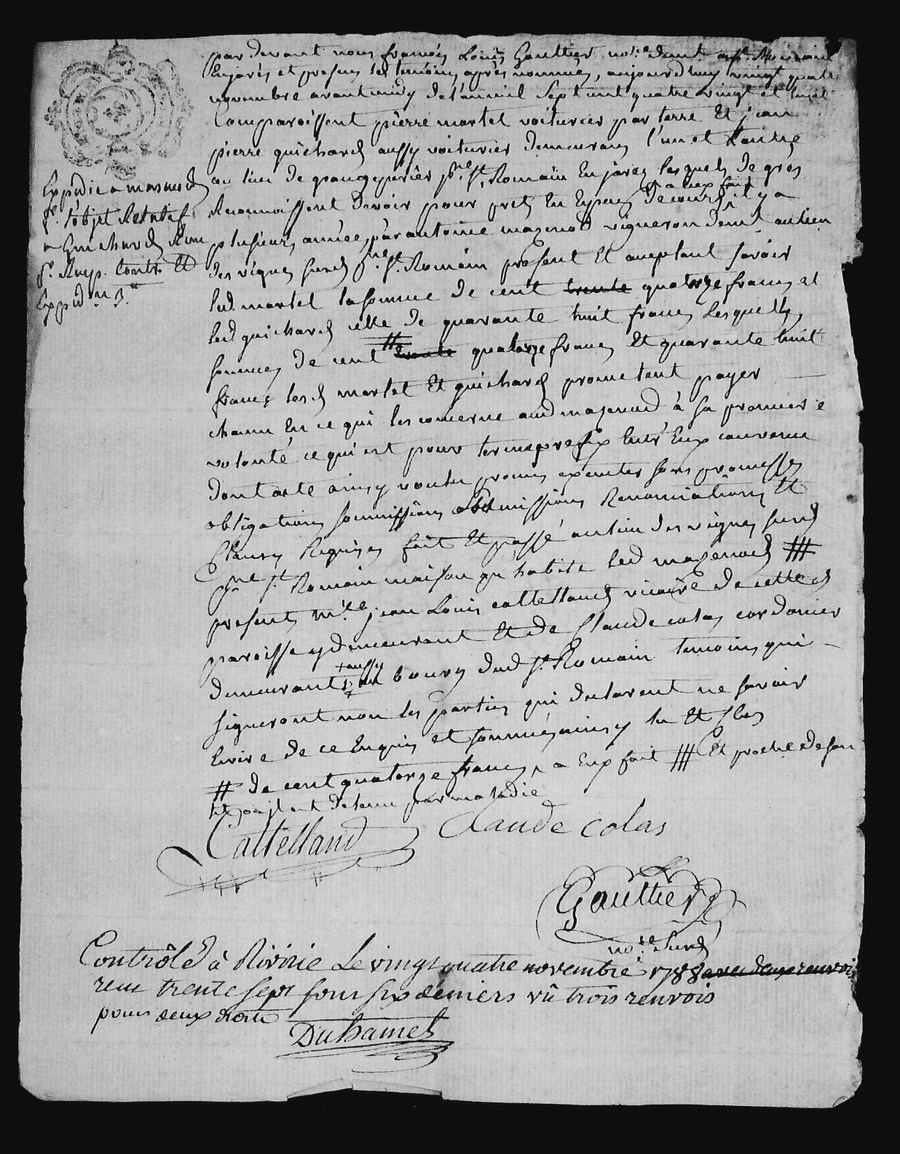 par devant nous françois Louis Gaultier no.re demt a St Romain
En jarés et presens les temoins apres nommés, aujourd'huy vingt quatre
novembre avant midy de l'an mil sept cent quatre vingt et huit
Comparoissent pierre martel voiturier par terre Et jean
pierre guichard aussy voiturier demeurans l'un et l'autre
au lieu de psse St Romain En jarez lesquels de gros
Reconnoissent Devoir pour prest En Especes De cours a eux fait il y a
plusieurs années par antoine mazenod vigneron demt au lieu
des vignes susd psse St Romain present et aceptant savoir
led martel la somme de cent trente quatorze francs et
led guichard celle de quarante huit francs Lesquelles
sommes de cent # trente quatorze francs Et quarante huit
francs lesd martel Et guichard promettent payer
chacun En ce qui les concerne aud mazenod à sa premiere
volonté ce qui est pour terme prefix Entr'Eux convenu
dont acte ainsy voulu promis executer sous promesses
obligations soumissions Renonciations Et
Clauses Requises fait Et passé au lieu des vignes susd
psse St Romain maison qu'habite led mazenod ###
presents mre jean Louis cattelland vicaire de cette d
paroisse y demeurant Et de Claude colas cordonier
demeurant aussy au bourg dud St Romain temoins qui
signeront non les parties qui declarent ne savoir
Ecrire de ce Enquis et sommés ainsy lu Et
# de cent quatorze francs, + a Eux fait ### Et proche de son
lit ou il est detenu par maladie
Cattelland Claude colas
Gaultier
no.re Susd
Contrôlé à Rivirie Le vingt quatre novembre 1788 avec deux renvois
reçu trente sept sous six deniers vû trois renvois
pour deux droits
DuHamel
Expedié a mazenod
l'objet Relatif
a Guichard
Reçu. Contr. Et
Exped.on 3.tt